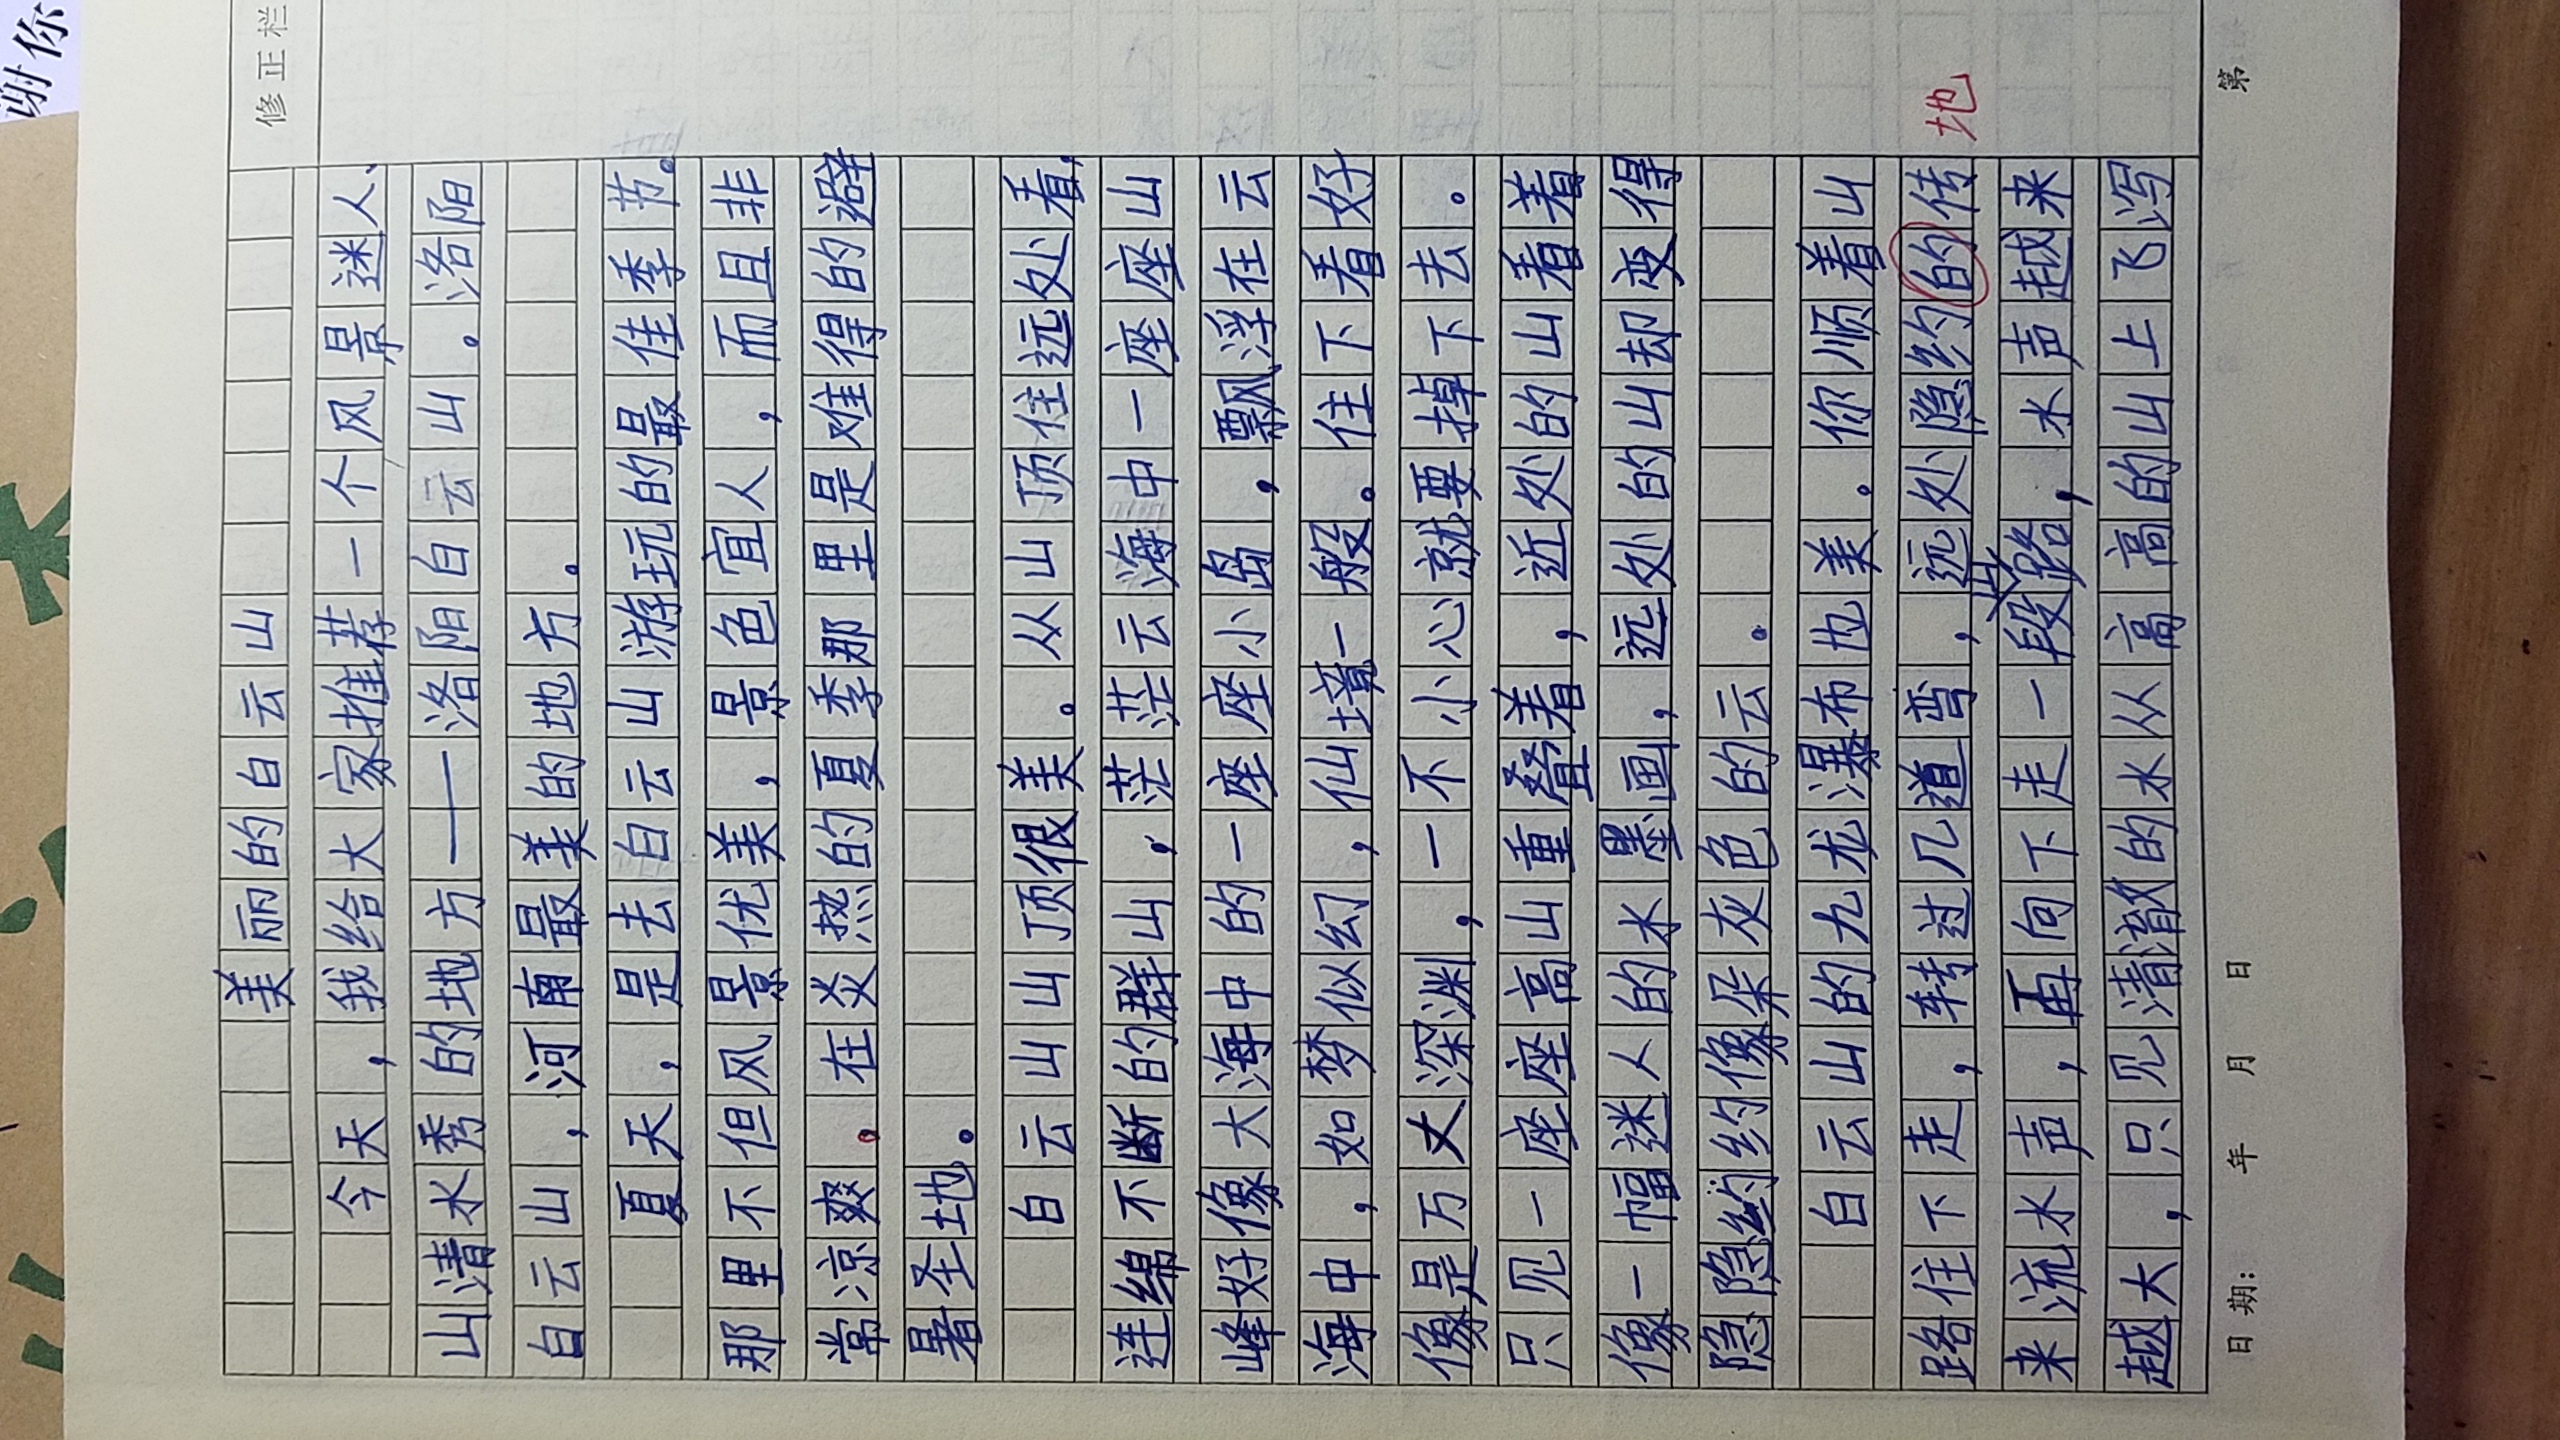 谢你
修正栏
美丽的白云山
今天，我给大家推荐一个风景迷人、
山清水秀的地方——洛阳白云山。洛阳
白云山，河南最美的地方。
夏天，是去白云山游玩的最佳季节。
那里不但风景优美，景色宜人，而且非
常凉爽。在炎热的夏季那里是难得的避
暑圣地。
白云山山顶很美。从山顶住远处看，
连绵不断的群山，茫茫云海中一座座山
峰好像大海中的一座座小岛，飘浮在云
海中，如梦似幻，仙境一般。住下看好
像是万丈深渊，一不小心就要掉下去。
只见一座座高山重叠着，近处的山看着
像一幅迷人的水墨画，远处的山却变得
隐隐约约像朵灰色的云。
白云山的九龙瀑布也美。你顺着山
路住下走，转过几道弯，远处隐约的传
地
来流水声，再向下走一段路，水声越来
越大，只见清澈的水从高高的山上飞泻
日期： 年 月 日
第